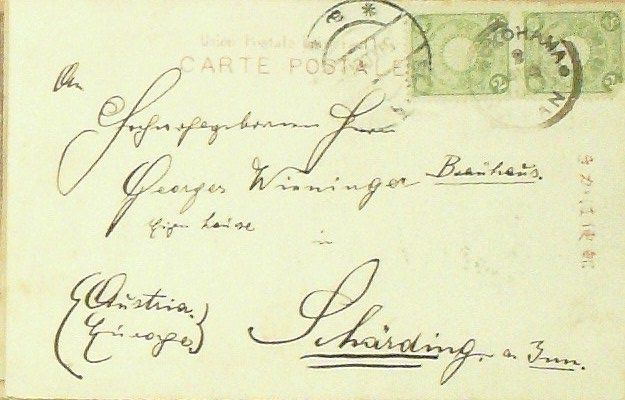 Union Postale Universelle
CARTE POSTALE
YOKOHAMA
An
Hochwohlgeborenen Herrn
Georges Wieninger Brauhaus.
in
(Austria.)
(Europe.)
Schärding, a. Inn.